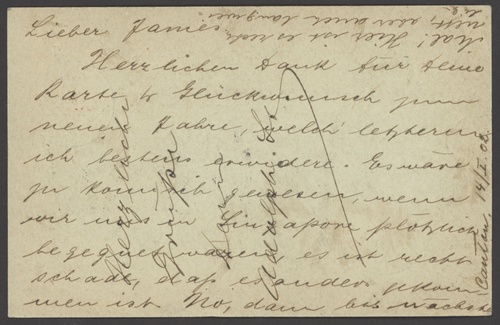 Lieber Jamie
Herzlichen Dank für Deine
Karte & Glückwunsch zum
neuen Jahre, welch' letzteren
ich bestens erwidere. Es wäre
zu komisch gewesen, wenn
wir uns in Singapore plötzlich
begegnet wären, es ist recht
schade, daß es anders gekom
men ist. No, dann bis nächstes
Mal! Hier ist es recht
nett, aber auch langwei
lig.
Herzliche
Grüße
Canton. 14/I 08